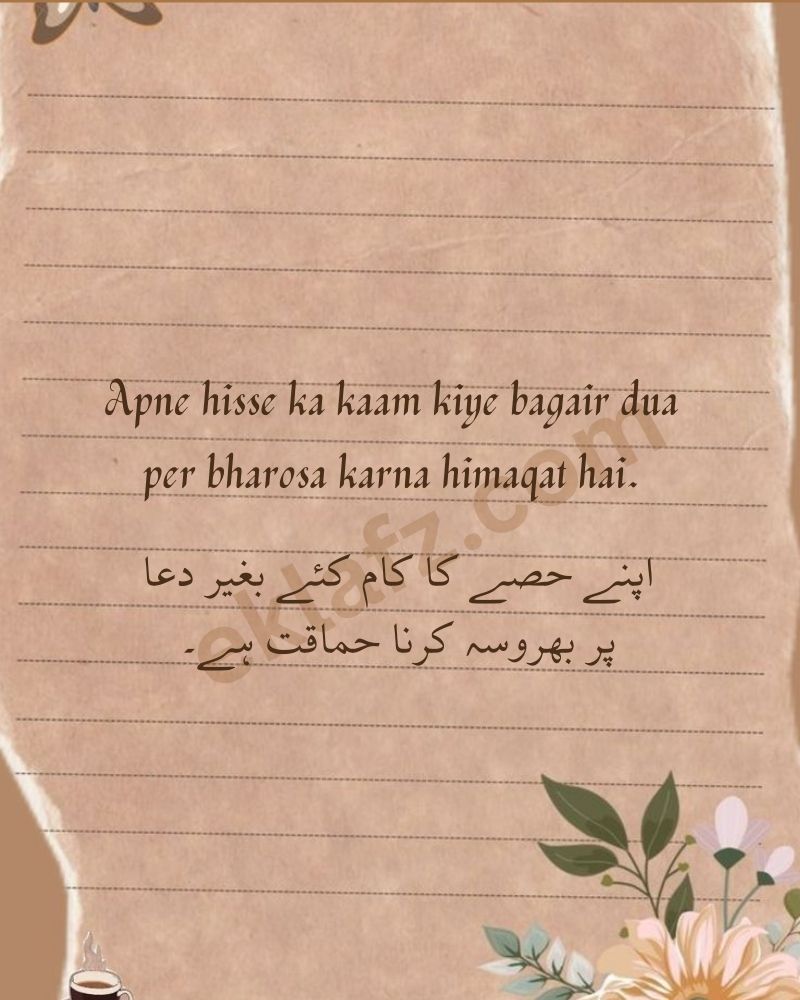 Apne hisse ka kaam kiye bagair dua
per bharosa karna himaqat hai.
اپنے حصے کا کام کئے بغیر دعا
پر بھروسہ کرنا حماقت ہے۔
eklafz.com